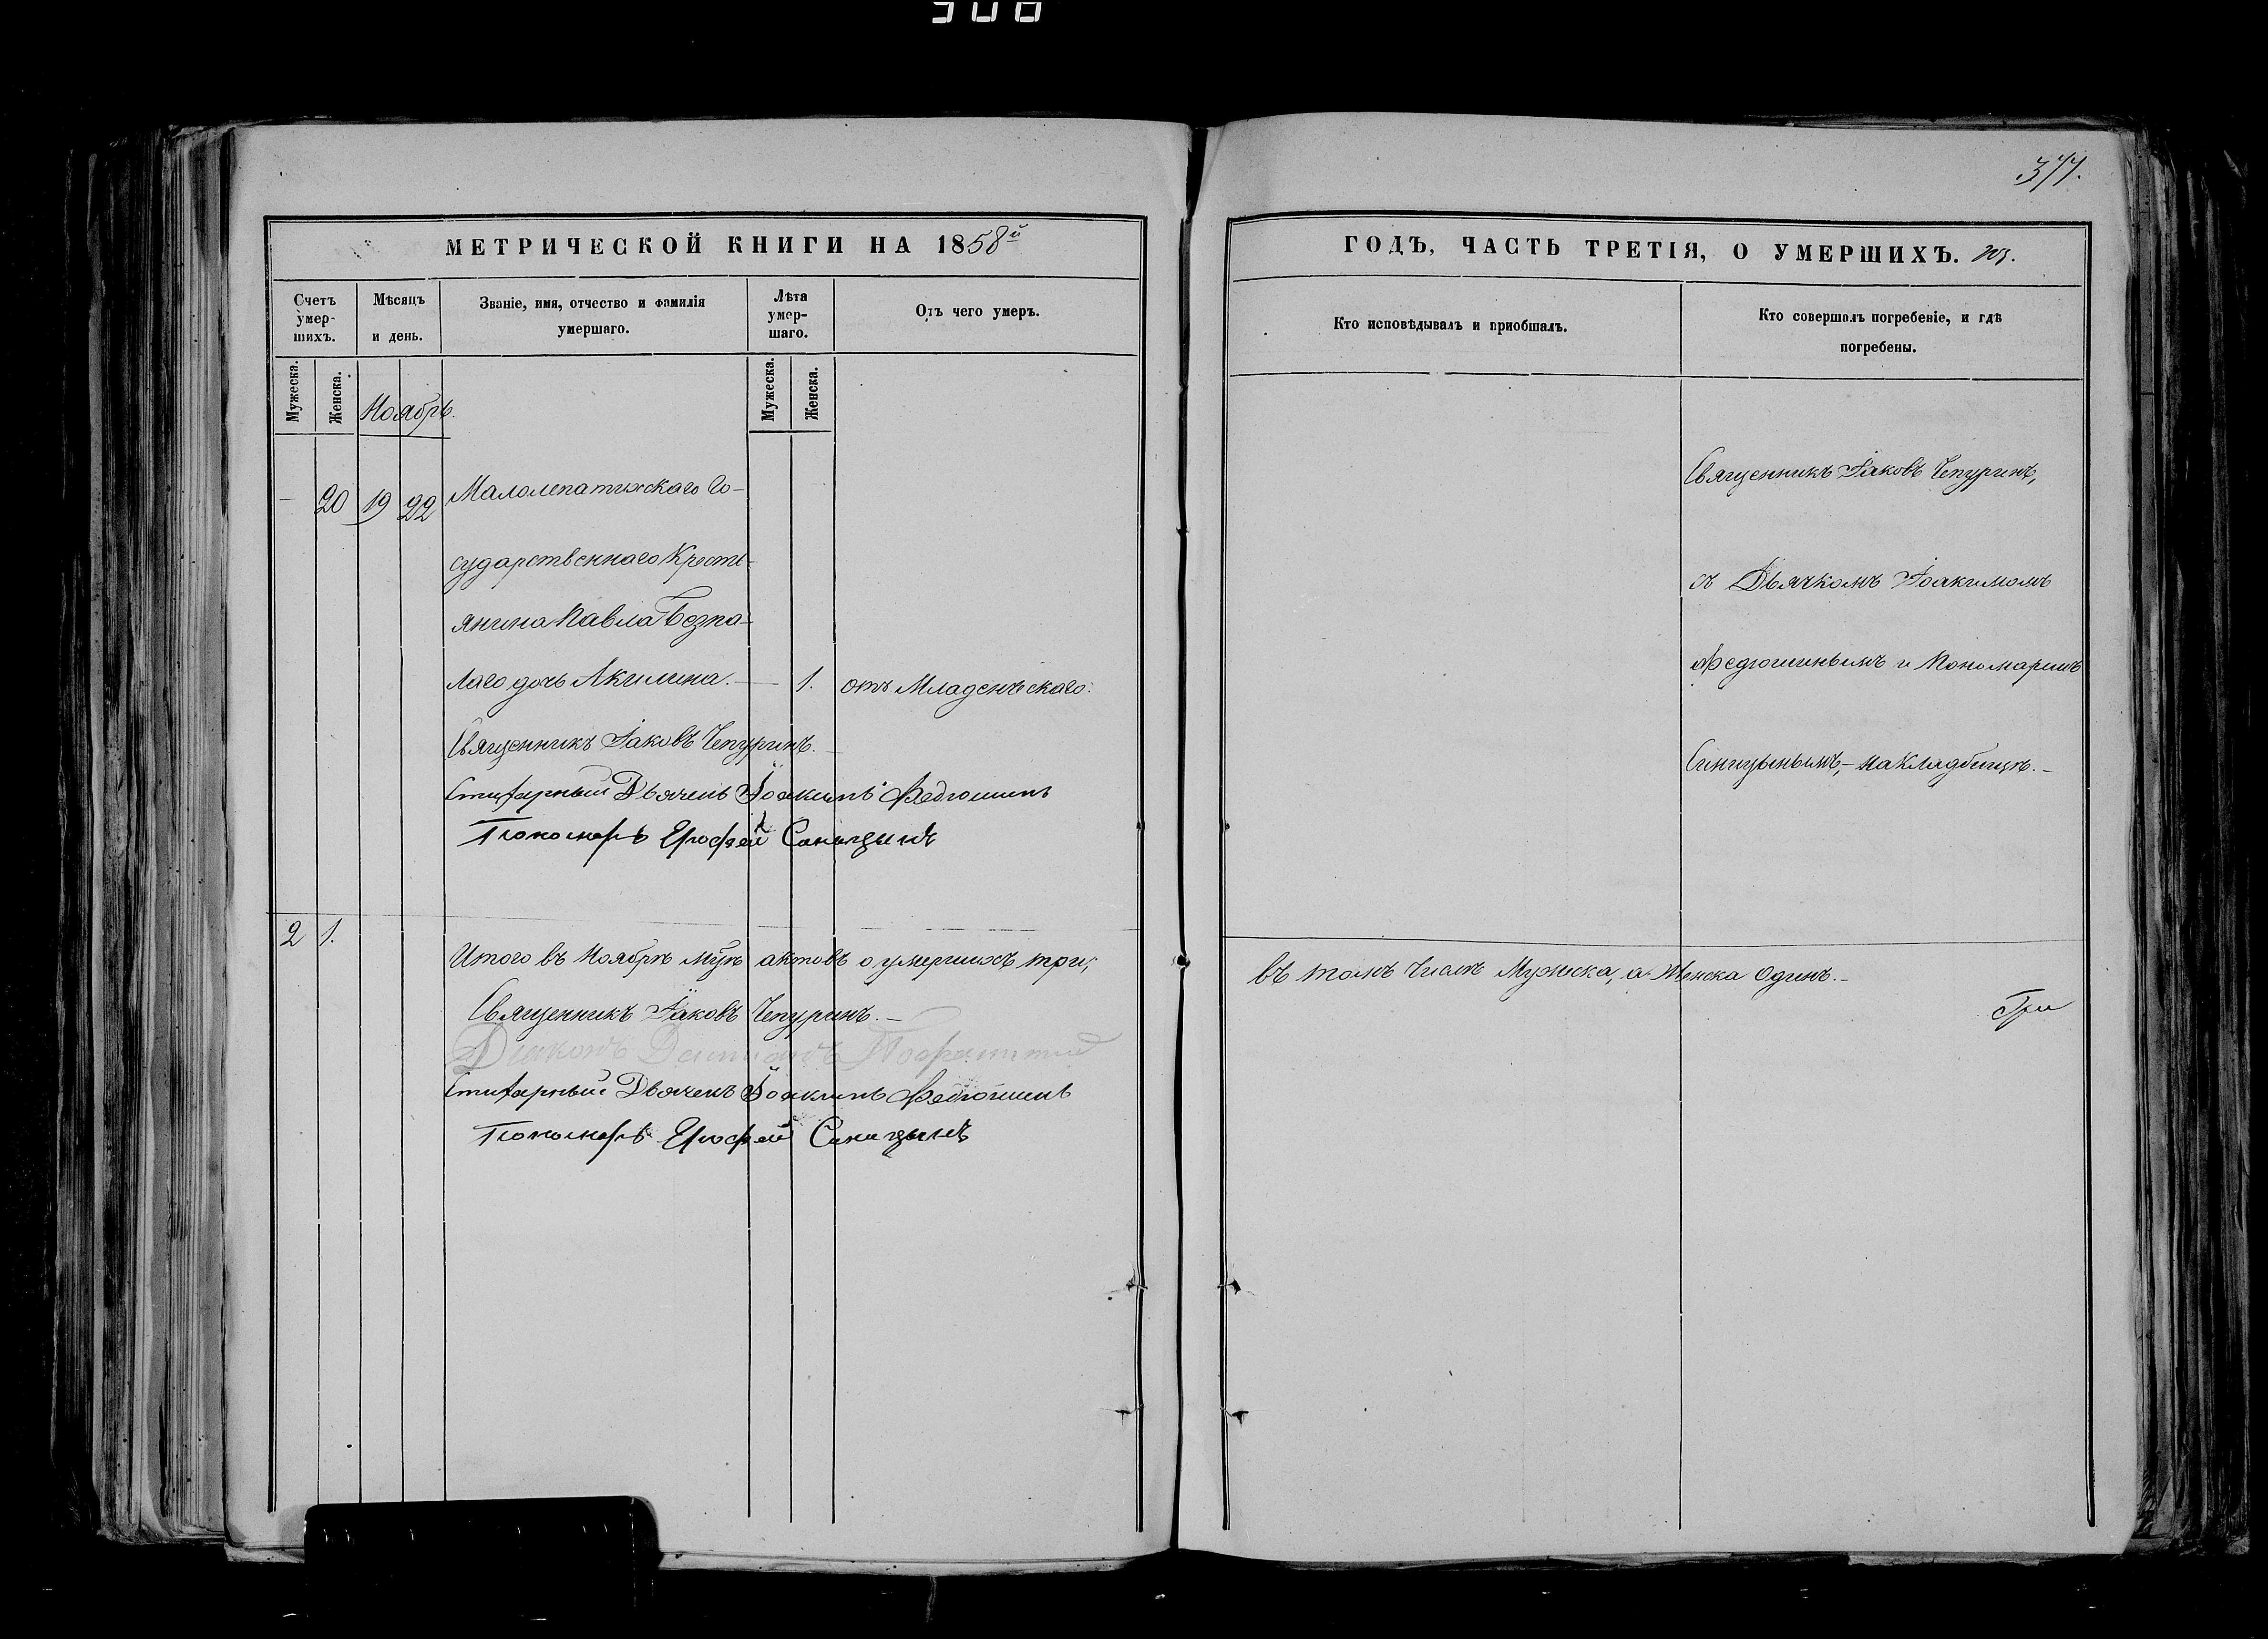 908
377.
МЕТРИЧЕСКОЙ КНИГИ НА 1858й
Счетъ умер- шихъ.
Мѣсяцъ и день.
Званіе, имя, отчество и фамилія умершаго.
Лѣта умер- шаго.
Отъ чего умеръ.
Мужеска.
Женска.
Ноябрь.
Мужеска.
Женска.
— 20 19 22 Малолепатихскаго Го-
сударственнаго Кресть-
янина Павла Безпа-
лаго дочь Акилина. — 1. отъ Младенческаго.
Священникъ Іаковъ Чепуринъ.
Стихарный Дьячекъ Іоакимъ Федюшинъ
Пономарь Ерофей Синицынъ
2 1.
Итого въ Ноябрѣ мцѣ актовъ о умершихъ три,
Священникъ Іаковъ Чепуринъ. —
Діаконъ
Стихарный Дьячекъ Іоакимъ Федюшинъ
Пономарь Ерофей Синицынъ
ГОДЪ, ЧАСТЬ ТРЕТІЯ, О УМЕРШИХЪ.
Кто исповѣдывалъ и пріобщалъ.
Кто совершалъ погребеніе, и гдѣ погребены.
Священникъ Іаковъ Чепуринъ,
съ Дьячкомъ Іоакимомъ
Федюшинымъ и Пономаремъ
Синицынымъ, — на Кладбищѣ. —
въ томъ Числѣ Мужеска, а Женска Одинъ. —